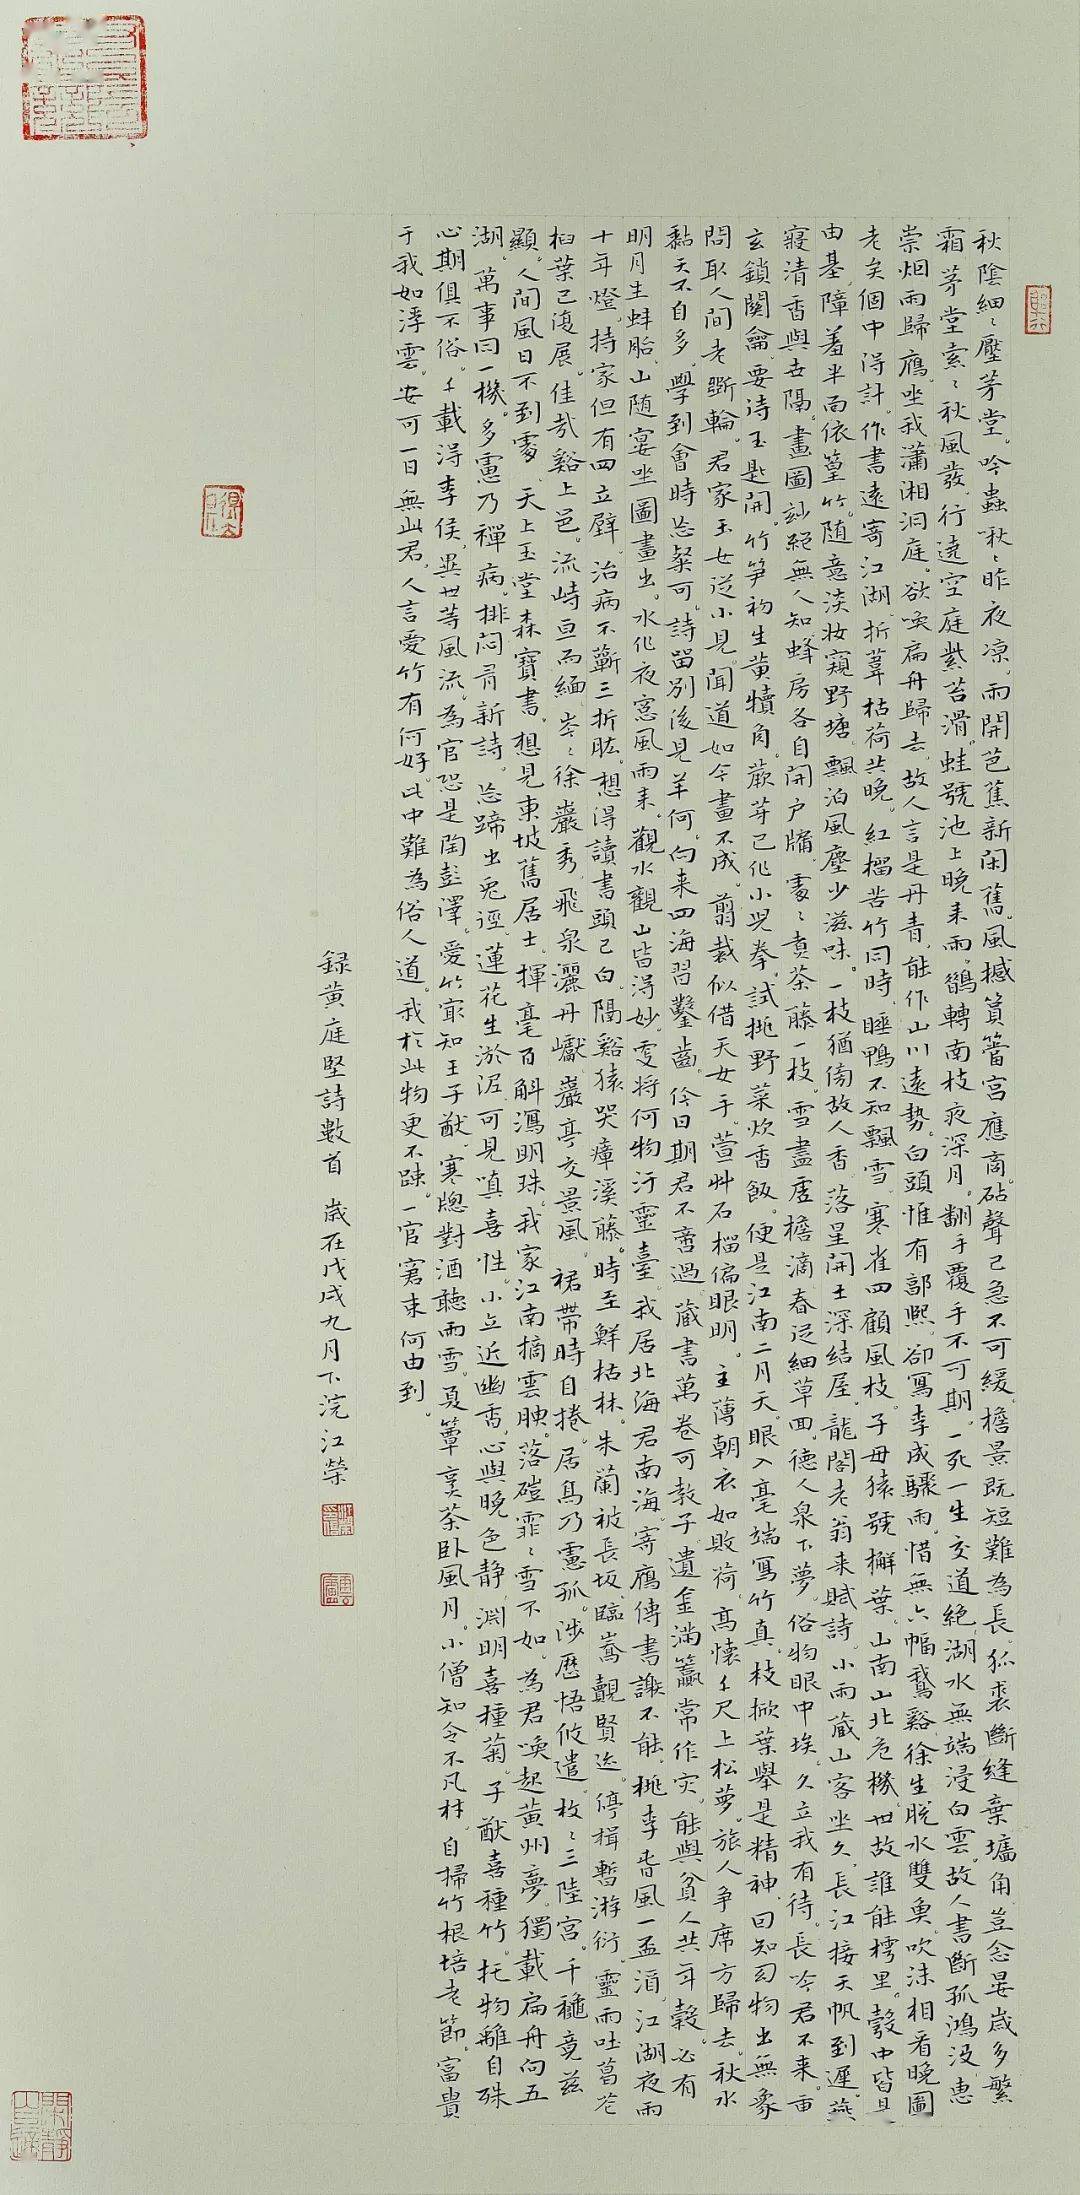 秋陰細ミ壓茅堂。吟蟲啾ミ昨夜凉。雨開芭蕉新閑舊。風撼篔簹宮應商。砧聲已急不可緩。檐景既短難為長。狐裘斷縫棄墻角。豈念晏歲多繁
霜。茅堂索ミ秋風發。行遶空庭紫苔滑。蛙號池上晚來雨。鵲轉南枝夜深月。翻手覆手不可期。一死一生交道絶。湖水無端浸白雲。故人書斷孤鴻没。惠
崇烟雨歸鴈。坐我瀟湘洞庭。欲喚扁舟歸去。故人言是丹青。能作山川遠勢。白頭惟有郭熙。卻寫李成驟雨。惜無六幅鵝谿。徐生脱水雙魚。吹沫相看晚圖
老矣個中得計。作書遠寄江湖。折葦枯荷共晚。紅榴苦竹同時。睡鴨不知飄雪。寒雀四顧風枝。子母猿號槲葉。山南山北危機。世故誰能樗里。彀中皆是
由基。障羞半面依篁竹。随意淡妝窺野塘。飄泊風塵少滋味。一枝猶傍故人香。落星開士深結屋。龍閣老翁來賦詩。小雨藏山客坐久。長江接天帆到遲。燕
寢清香與世隔。畫圖妙絕無人知。蜂房各自開户牖。處ミ煮茶藤一枝。雪盡虛檐滴。春從細草回。德人泉下夢。俗物眼中埃。久立我有待。長吟君不來。重
玄鎖關龠。要待玉匙開。竹笋初生黄犢角。蕨芽已作小兒拳。試挑野菜炊香飯。便是江南二月天。眼入毫端寫竹真。枝掀葉舉是精神。因知幻物出無象
問取人間老斲輪。君家玉女從小見。聞道如今畫不成。翦裁似借天女手。萱艸石榴偏眼明。主薄朝衣如敗荷。高懷千尺上松蘿。旅人争席方歸去。秋水
黏天不自多。學到會時忘粲可。詩留別後見羊何。向来四海習鑿齒。今日期君不啻過。藏書萬卷可教子。遺金滿籯常作灾。能與貧人共年穀。必有
明月生蚌胎。山随宴坐圖畫出。水作夜窓風雨来。觀水觀山皆得妙。更将何物汙靈臺。我居北海君南海。寄鴈傳書謝不能。桃李春風一盃酒。江湖夜雨
十年燈。持家但有四立壁。治病不蘄三折肱。想得讀書頭已白。隔谿猿哭瘴溪藤。時至鮮枯林。朱蘭被長坂。臨嵩覿賢迹。停楫暫游衍。靈雨吐菖花
桕葉已復展。佳哉谿上邑。流峙亘而緬。岑ミ徐巖秀。飛泉灑丹巘。巖亭交景風。裙帶時自捲。居鳥乃憲孤。涉歷悟攸遣。枚ミ三陸宫。千穐竟兹
顯。人間風日不到處。天上玉堂森寶書。想見東坡舊居士。揮毫百斛瀉明珠。我家江南摘雲腴。落磑霏ミ雪不如。為君喚起黄州夢。獨載扁舟向五
湖。萬事同一機。多慮乃禪病。排悶有新詩。忘蹄出兔逕。蓮花生淤泥。可見嗔喜性。小立近幽香。心與晚色静。淵明喜種菊。子猷喜種竹。托物雖自殊
心期俱不俗。千載得李侯。異世等風流。為官恐是陶彭澤。愛竹最知王子猷。寒窗對酒聽雨雪。夏簟烹茶卧風月。小僧知令不凡材。自掃竹根培老節。富貴
于我如浮雲。安可一日無此君。人言愛竹有何好。此中難為俗人道。我於此物更不疎。一官窘束何由到。
録黄庭堅詩數首 歲在戊戌九月下浣江榮